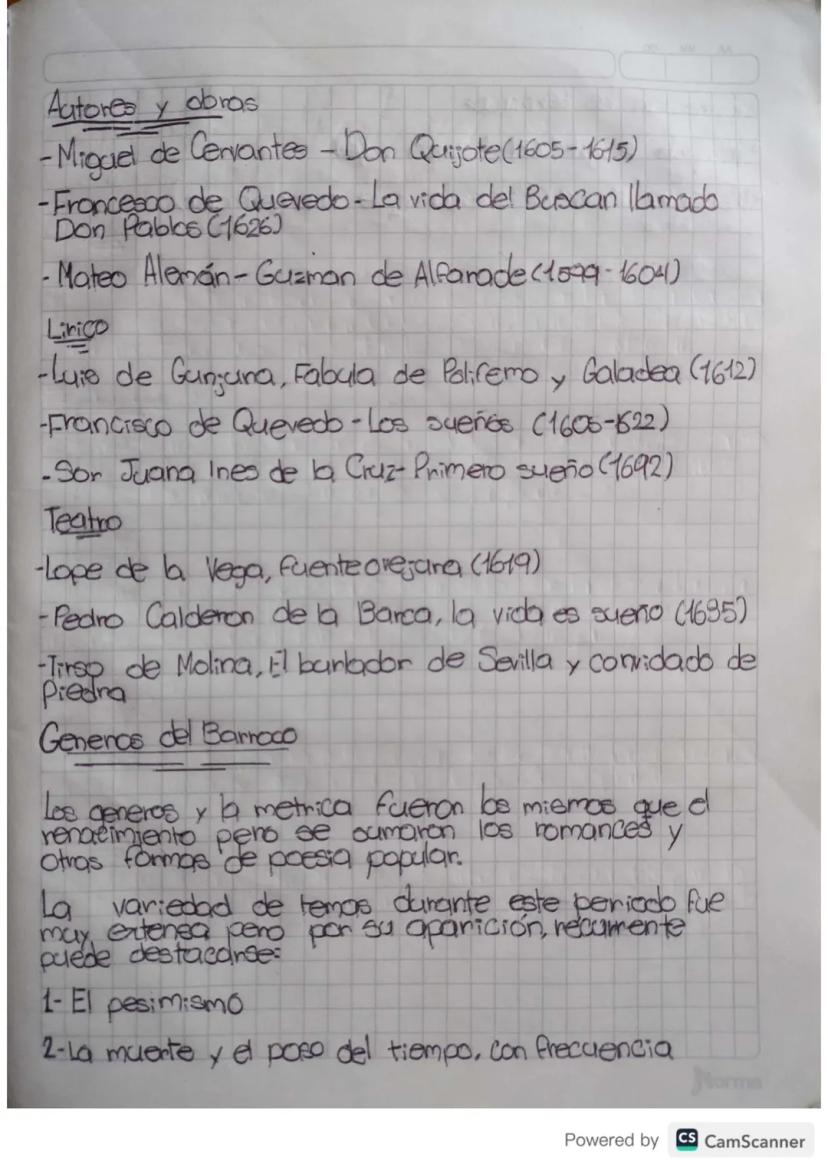 Autores y obras
-Miguel de Cervantes - Don Quijote (1605-1615)
-Francesco de Quevedo - La vida del Buscan llamado
Don Pablos (1626)
- Mateo Alemán - Guzman de Alfarade (1599-1604)
Lirico
-Luis de Gunguna, Fabula de Polifemo y Galadea (1612)
-Francisco de Quevedo - Los sueños (1606-1622)
- Sor Juana Ines de la Cruz - Primero sueño (1692)
Teatro
-Lope de la Vega, fuente ovejuna (1619)
-Pedro Calderon de la Barca, la vida es sueño (1635)
-Tirso de Molina, El burlador de Sevilla y convidado de
Piedra
Generos del Barroco
Los generos y la metrica fueron los mismos que el
renacimiento pero se sumaron los romances y
otras formas de poesia popular.
La variedad de temas durante este periodo fue
muy extensa pero por su aparición, recurrente
puede destacarse:
1- El pesimismo
2-La muerte y el paso del tiempo, con frecuencia
Norma
Powered by CS CamScanner